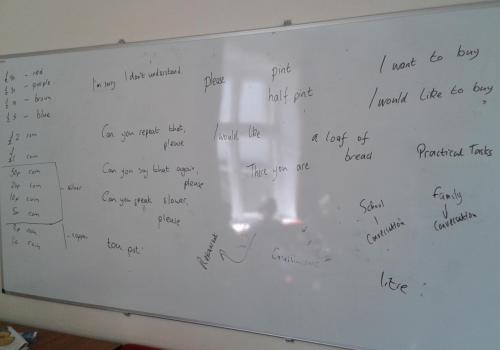 - red
- purple
- brown
- blue
£2 coin
£1 coin
50p coin
20p coin
10p coin
5p coin
silver
copper
I'm sorry I don't understand.
Can you repeat that,
please
Can you say that again,
please
Can you speak slower,
please
please
I would like
There you are
pint
half pint
a loaf of
bread
I want to buy
I would like to buy
Practical Tasks
School
Conversation
Family
Conversation
litre